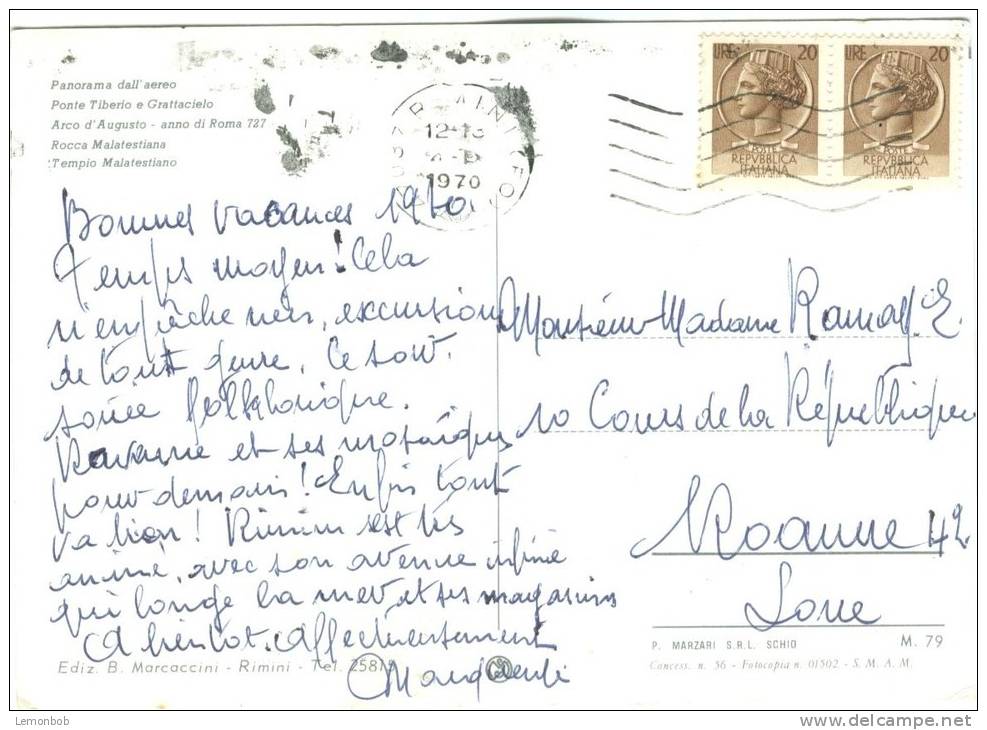 Panorama dall'aereo
Ponte Tiberio e Grattacielo
Arco d'Augusto - anno di Roma 727
Rocca Malatestiana
Tempio Malatestiano
LIRE 20
POSTE
REPVBBLICA
ITALIANA
LIRE 20
POSTE
REPVBBLICA
ITALIANA
1970
Bonnes vacances 1970
Temps moyen! Cela
n'empêche rien, excursions
de tout genre. Ce soir.
soirée folklorique.
Ravenne et ses mosaïques
pour demain! Enfin tout
va bien! Rimini est très
animé, avec son avenue infinie
qui longe la mer et ses magasins
A bientôt. Affectueusement
Monsieur Madame E.
10 Cours de la République
Roanne 42
Loire
Ediz. B. Marcaccini - Rimini - Tel. 25815
P. MARZARI S.R.L. SCHIO
M. 79
Concess. n. 56 - Fotocopia n. 01502 - S. M. A. M.
Lemonbob
www.delcampe.net